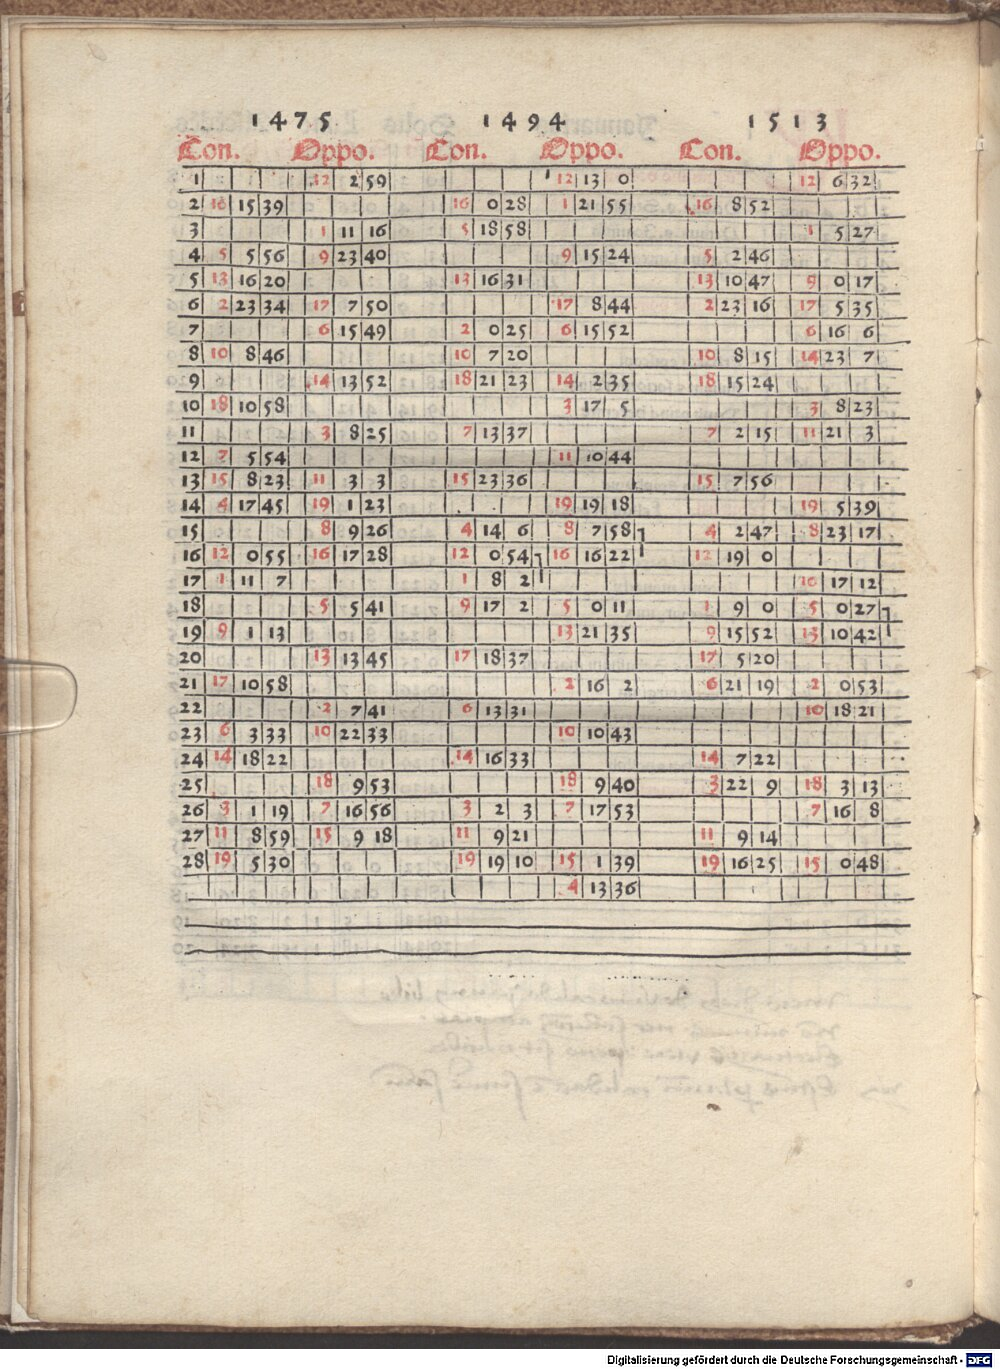 1475 1494 1513
Con. Oppo. Con. Oppo. Con. Oppo.
1 12 2 59 12 13 0 12 6 32
2 16 15 39 16 0 28 1 21 55 16 8 52
3 1 11 16 5 18 58 1 5 27
4 5 5 56 9 23 40 9 15 24 5 2 46
5 13 16 20 13 16 31 13 10 47 9 0 17
6 2 23 34 17 7 50 17 8 44 2 23 16 17 5 35
7 6 15 49 2 0 25 6 15 52 6 16 6
8 10 8 46 10 7 20 10 8 15 14 23 7
9 14 13 52 18 21 23 14 2 35 18 15 24
10 18 10 58 3 17 5 3 8 23
11 3 8 25 7 13 37 7 2 15 11 21 3
12 7 5 54 11 10 44
13 15 8 23 11 3 3 15 23 36 15 7 56
14 4 17 45 19 1 23 19 19 18 19 5 39
15 8 9 26 4 14 6 8 7 58 4 2 47 8 23 17
16 12 0 55 16 17 28 12 0 54 16 16 22 12 19 0
17 1 11 7 1 8 2 16 17 12
18 5 5 41 9 17 2 5 0 11 1 9 0 5 0 27
19 9 1 13 13 21 35 9 15 52 13 10 42
20 13 13 45 17 18 37 17 5 20
21 17 10 58 2 16 2 6 21 19 2 0 53
22 2 7 41 6 13 31 10 18 21
23 6 3 33 10 22 33 10 10 43
24 14 18 22 14 16 33 14 7 22
25 18 9 53 18 9 40 3 22 9 18 3 13
26 3 1 19 7 16 56 3 2 3 7 17 53 7 16 8
27 11 8 59 15 9 18 11 9 21 11 9 14
28 19 5 30 19 19 10 15 1 39 19 16 25 15 0 48
4 13 36
Digitalisierung gefördert durch die Deutsche Forschungsgemeinschaft - DFG